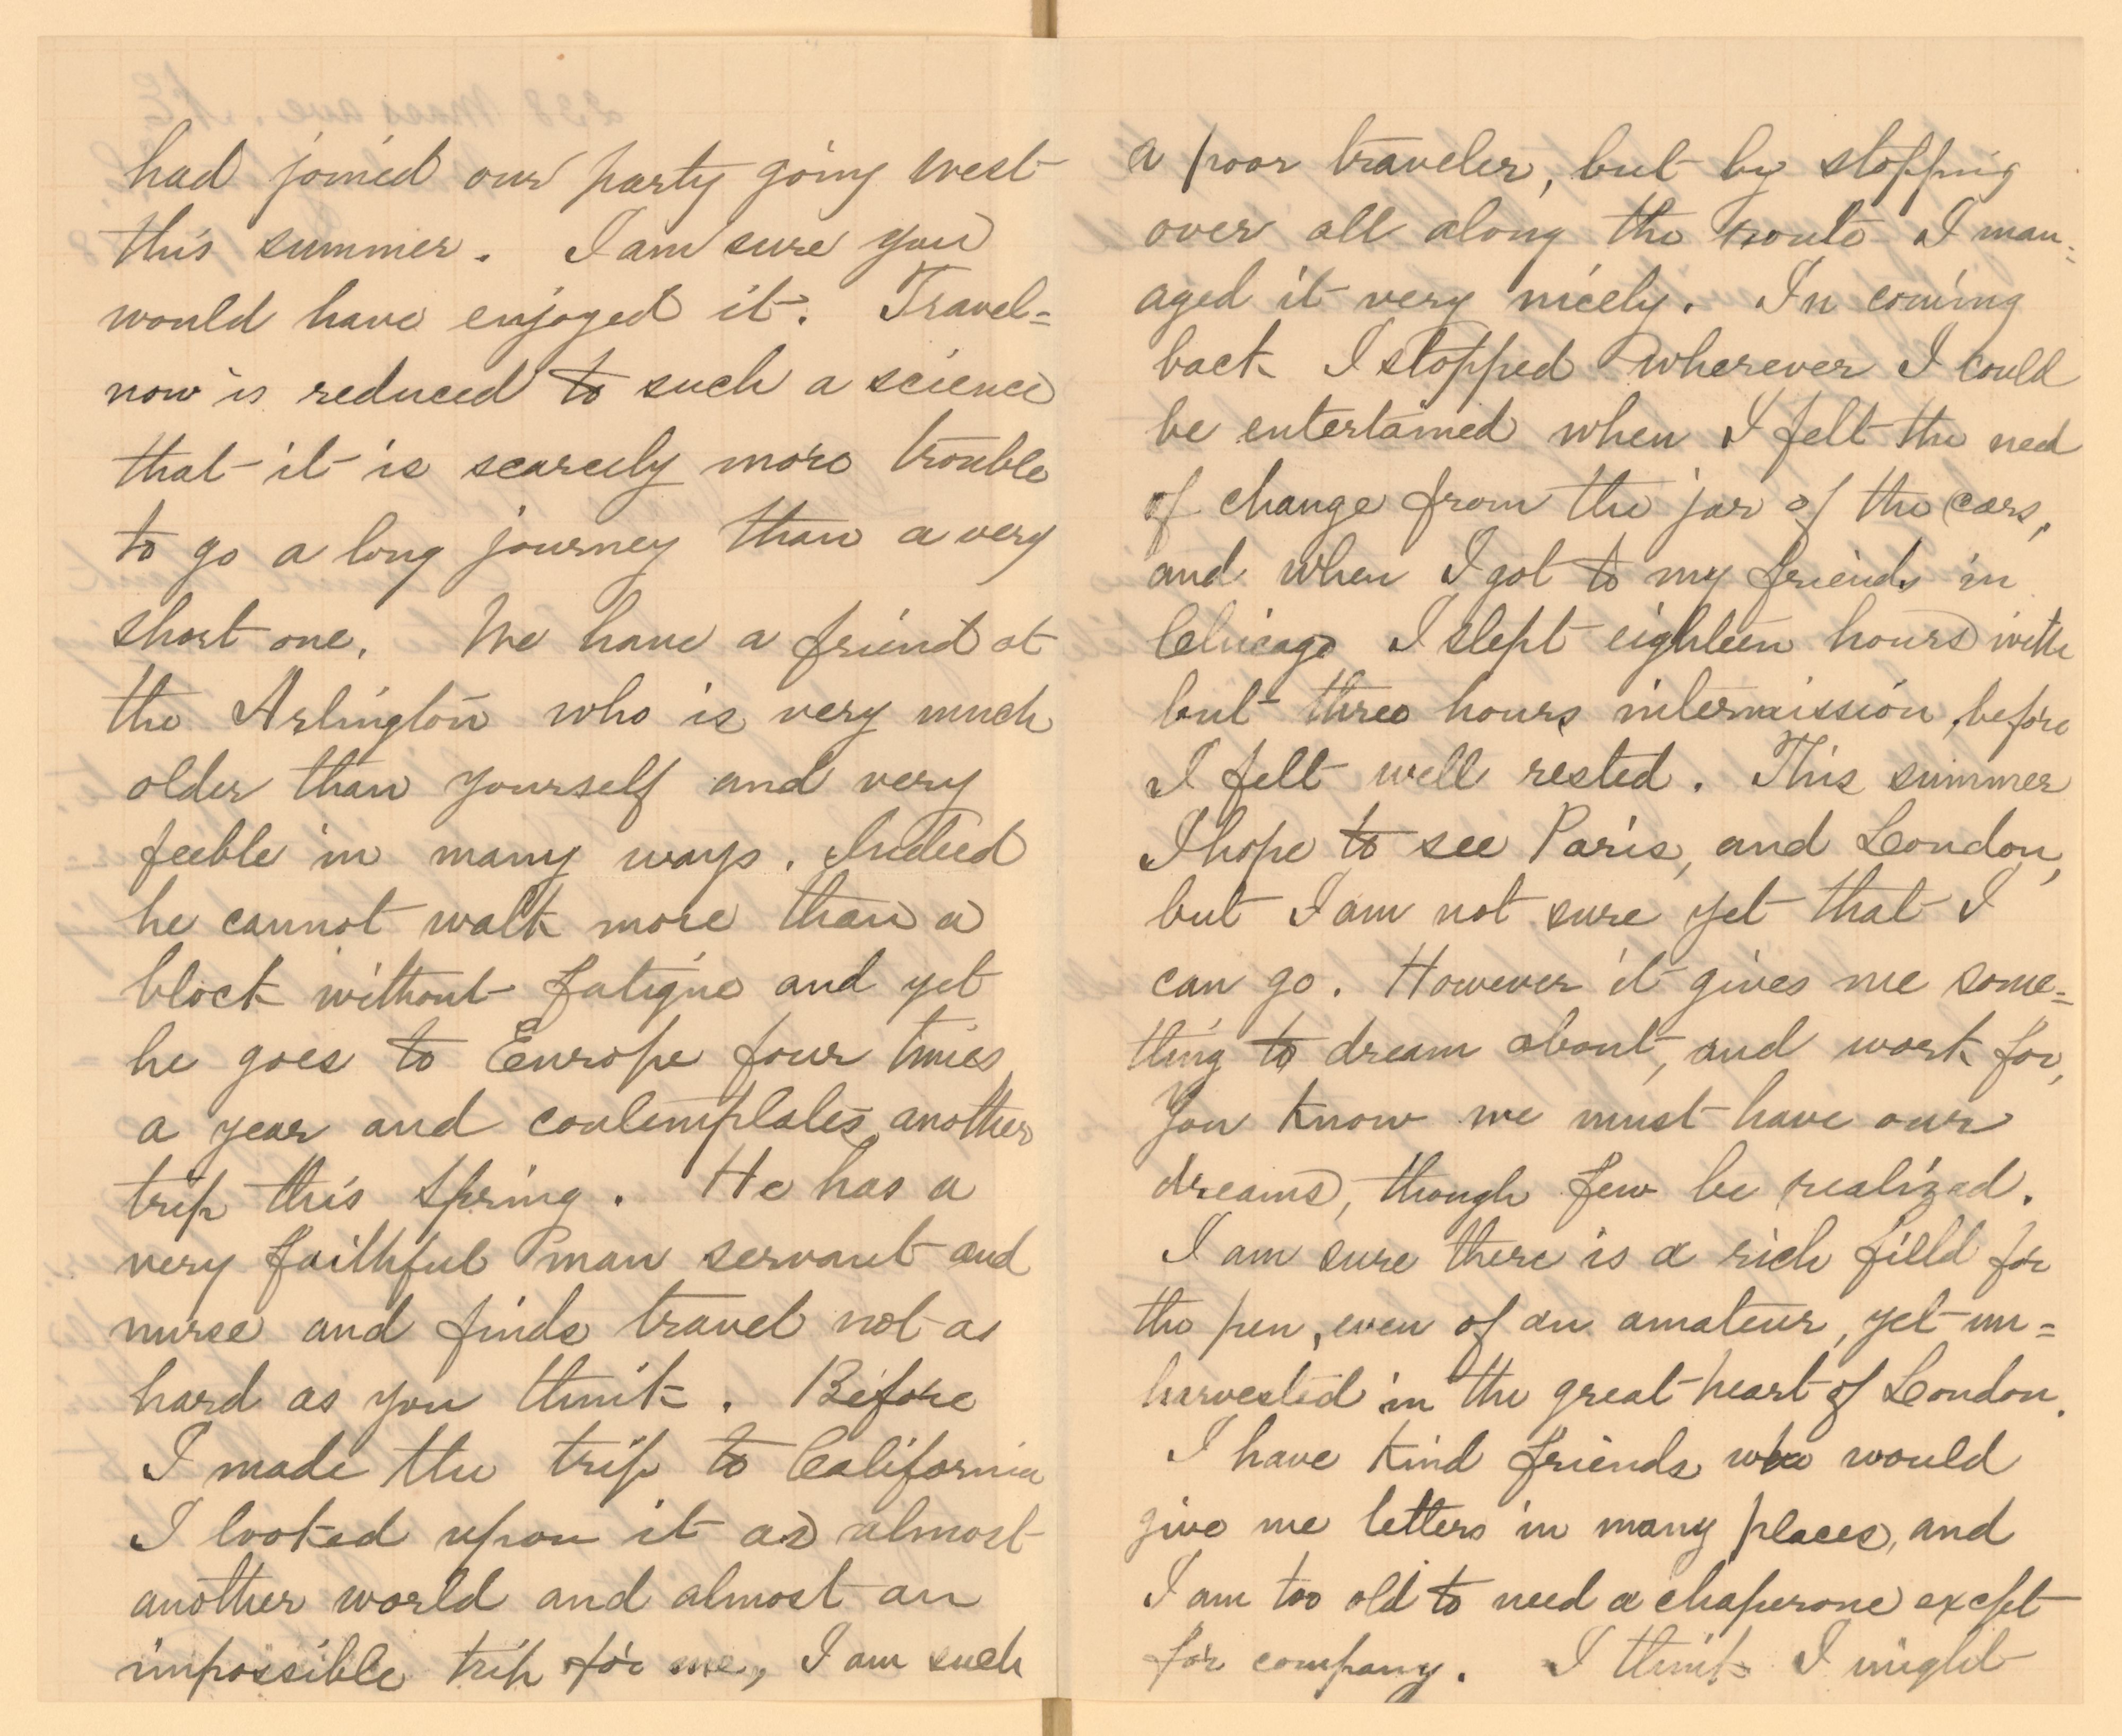 had joined our party going west
this summer. I am sure you
would have enjoyed it. Travel=
now is reduced to such a science
that it is scarcely more trouble
to go a long journey than a very
short one. We have a friend at
the Arlington who is very much
older than yourself and very
feeble in many ways. Indeed
he cannot walk more than a
block without fatigue and yet
he goes to Europe four times
a year and contemplates another
trip this Spring. He has a
very faithful man servant and
nurse and finds travel not as
hard as you think. Before
I made the trip to California
I looked upon it as almost
another world and almost an
impossible trip for me, I am such
a poor traveler, but by stopping
over all along the route I man=
aged it very nicely. In coming
back I stopped wherever I could
be entertained when I felt the need
of change from the jar of the cars,
and when I got to my friends in
Chicago I slept eighteen hours with
but three hours intermission, before
I felt well rested. This summer
I hope to see Paris, and London,
but I am not sure yet that I
can go. However it gives me some=
thing to dream about, and work for,
You know we must have our
dreams, though few be realized.
I am sure there is a rich field for
the pen, even of an amateur, yet un=
harvested in the great heart of London.
I have kind friends who would
give me letters in many places, and
I am too old to need a chaperone except
for company. I think I might